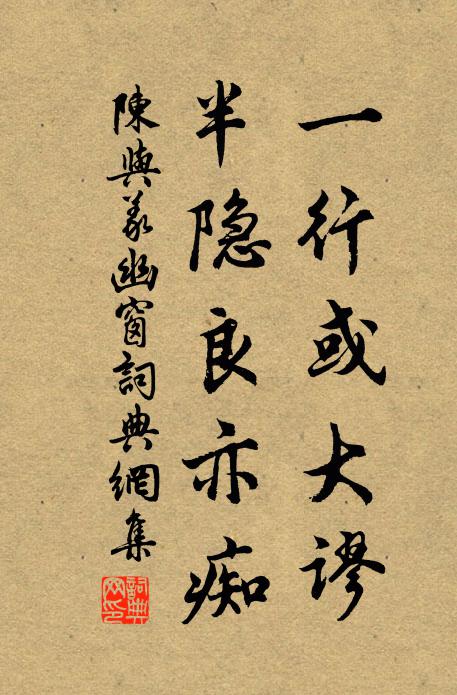 一行或大謬
半隐良亦痴
陳與義幽窗詞典網集
詞典网印